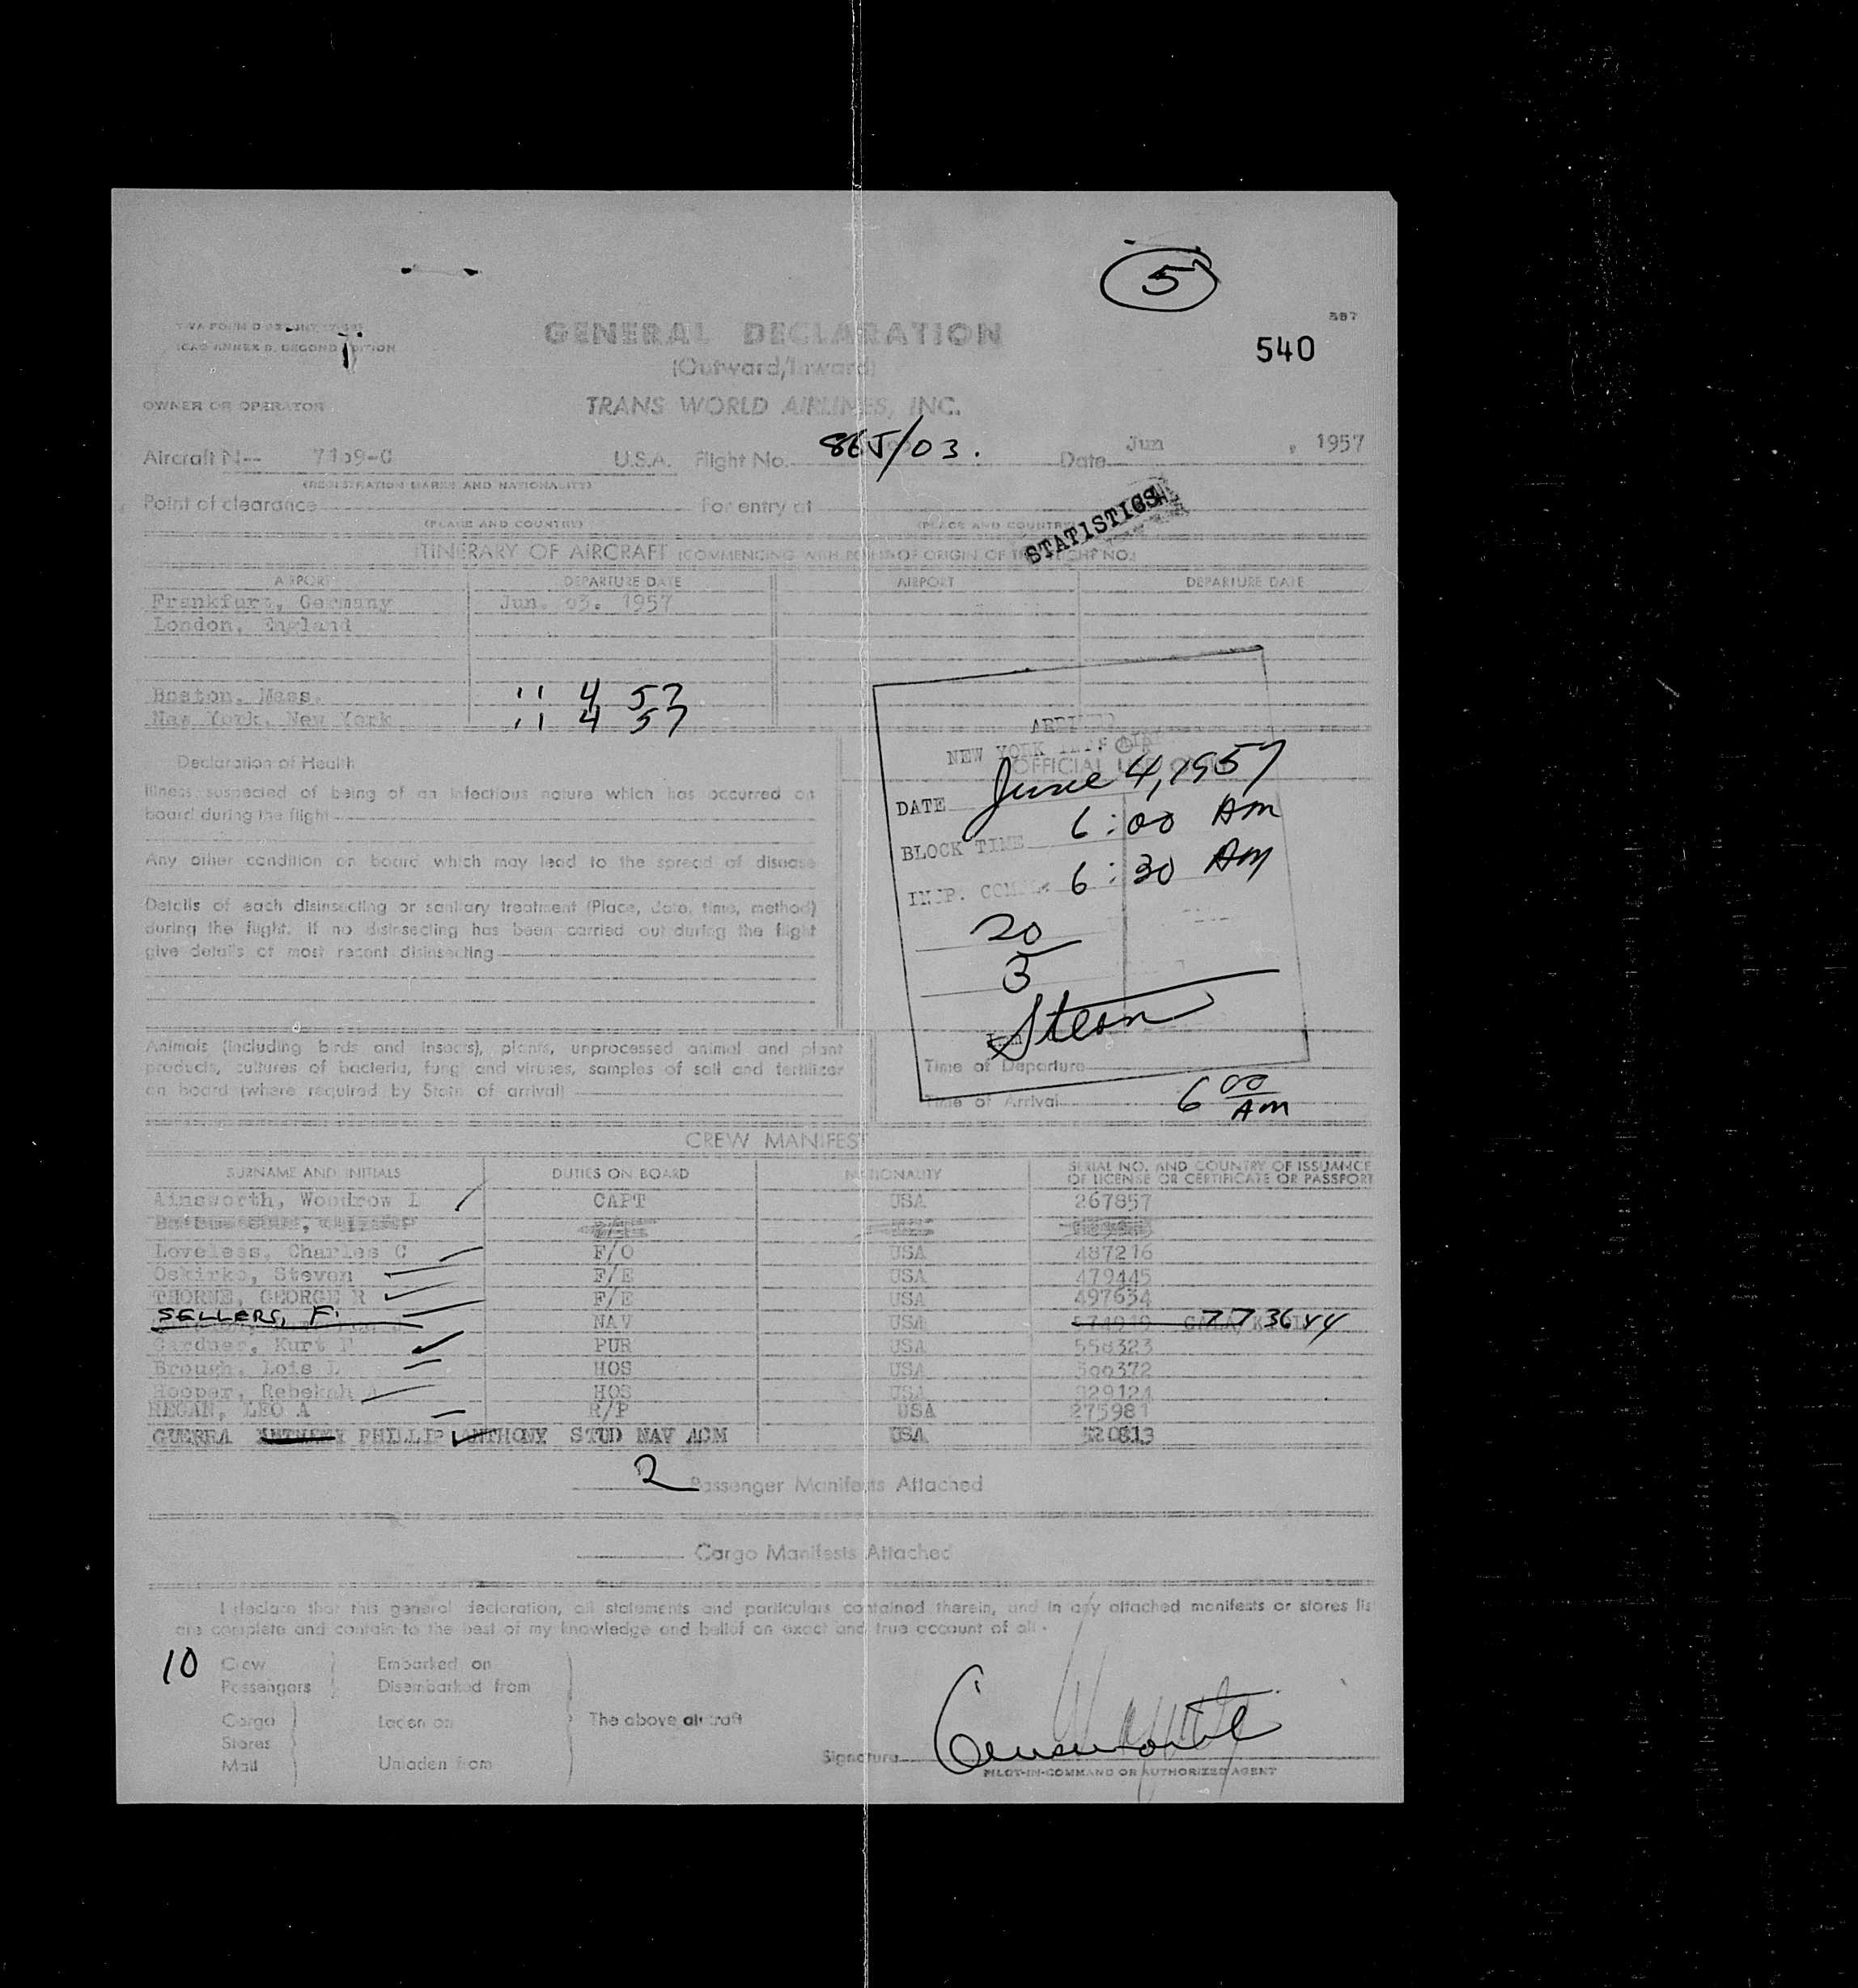 5
587
ICAO ANNEX 9, SECOND EDITION
GENERAL DECLARATION
540
(Outward/Inward)
OWNER OR OPERATOR
TRANS WORLD AIRLINES, INC.
Aircraft N-- U.S.A. Flight No. 86J/03. Date Jun , 1957
(REGISTRATION MARKS AND NATIONALITY)
Point of clearance For entry at
(PLACE AND COUNTRY) (PLACE AND COUNTRY)
STATISTICS
ITINERARY OF AIRCRAFT (COMMENCING WITH POINT OF ORIGIN OF THIS FLIGHT NO.)
AIRPORT DEPARTURE DATE AIRPORT DEPARTURE DATE
Frankfurt, Germany Jun. 03. 1957
London, England
Boston, Mass. " 4 57
New York, New York " 4 57
ARRIVED
NEW YORK
OFFICIAL USE ONLY
DATE June 4, 1957
BLOCK TIME 6:00 AM
INSP. 6:30 AM
20
3
Stern
Declaration of Health
Illness suspected of being of an infectious nature which has occurred on
board during the flight
Any other condition on board which may lead to the spread of disease
Details of each disinsecting or sanitary treatment (Place, date, time, method)
during the flight. If no disinsecting has been carried out during the flight
give details of most recent disinsecting
Animals (including birds and insects), plants, unprocessed animal and plant
products, cultures of bacteria, fungi and viruses, samples of soil and fertilizer
on board (where required by State of arrival)
Time of Departure
Time of Arrival 6 00 AM
CREW MANIFEST
SURNAME AND INITIALS DUTIES ON BOARD NATIONALITY SERIAL NO. AND COUNTRY OF ISSUANCE
OF LICENSE OR CERTIFICATE OR PASSPORT
Ainsworth, Woodrow L CAPT USA 267857
Loveless, Charles C F/O USA 487216
Oskirko, Steven F/E USA 479445
THORNE, GEORGE R F/E USA 497634
SELLERS, F. NAV USA
Gardner, Kurt PUR USA 558323
Brough, Lois L HOS USA
Hooper, Rebekah A HOS USA 329124
REGAN, LEO A R/P USA 275981
GUERRA PHILLIP ANTHONY STUD NAV ACM USA
2 Passenger Manifests Attached
Cargo Manifests Attached
I declare that this general declaration, all statements and particulars contained therein, and in any attached manifests or stores lis
are complete and contain to the best of my knowledge and belief an exact and true account of all
10 Crew Embarked on
Passengers Disembarked from
Cargo Laden on The above aircraft
Stores
Mail Unladen from
Signature Ainsworth
PILOT-IN-COMMAND OR AUTHORIZED AGENT